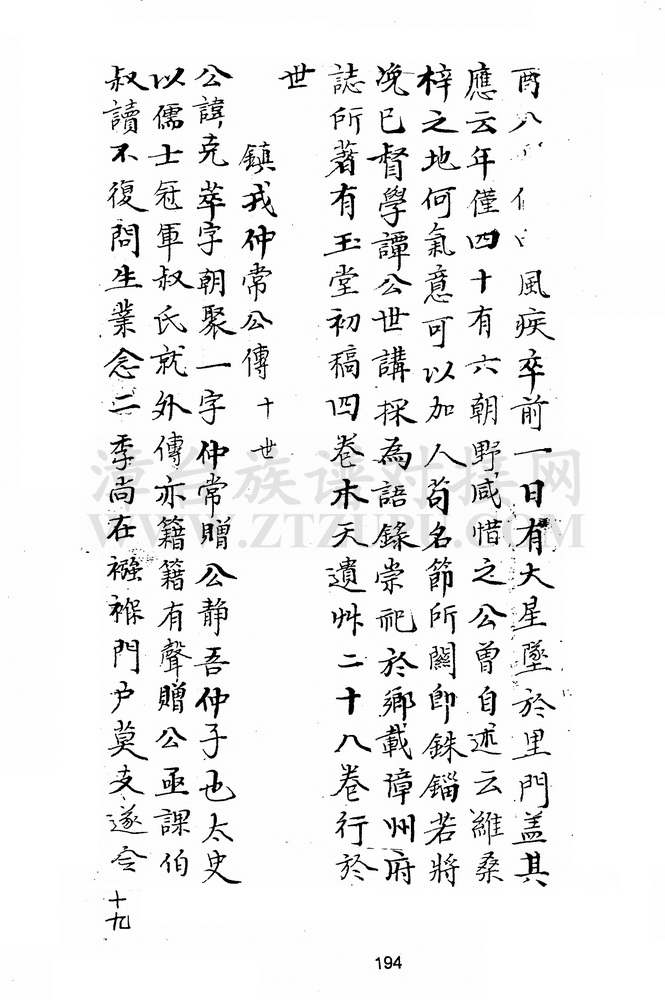 酉八 風疾卒前一日有大星墜於里門盖其
應云年僅四十有六朝野咸惜之公曾自述云維桑
梓之地何氣意可以加人苟名節所關即銖錙若將
浼已督學譚公世講採為語錄崇祀於鄉載漳州府
誌所著有玉堂初稿四卷木天遺艸二十八卷行於
世
鎮戎仲常公傳 十世
公諱克萃字朝聚一字仲常贈公静吾仲子也太史
以儒士冠軍叔氏就外傳亦籍籍有聲贈公亟課伯
叔讀不復問生業念二季尚在襁褓門户莫支遂令
十九
194
漳台族谱对接网
WWW.ZTZUPU.COM